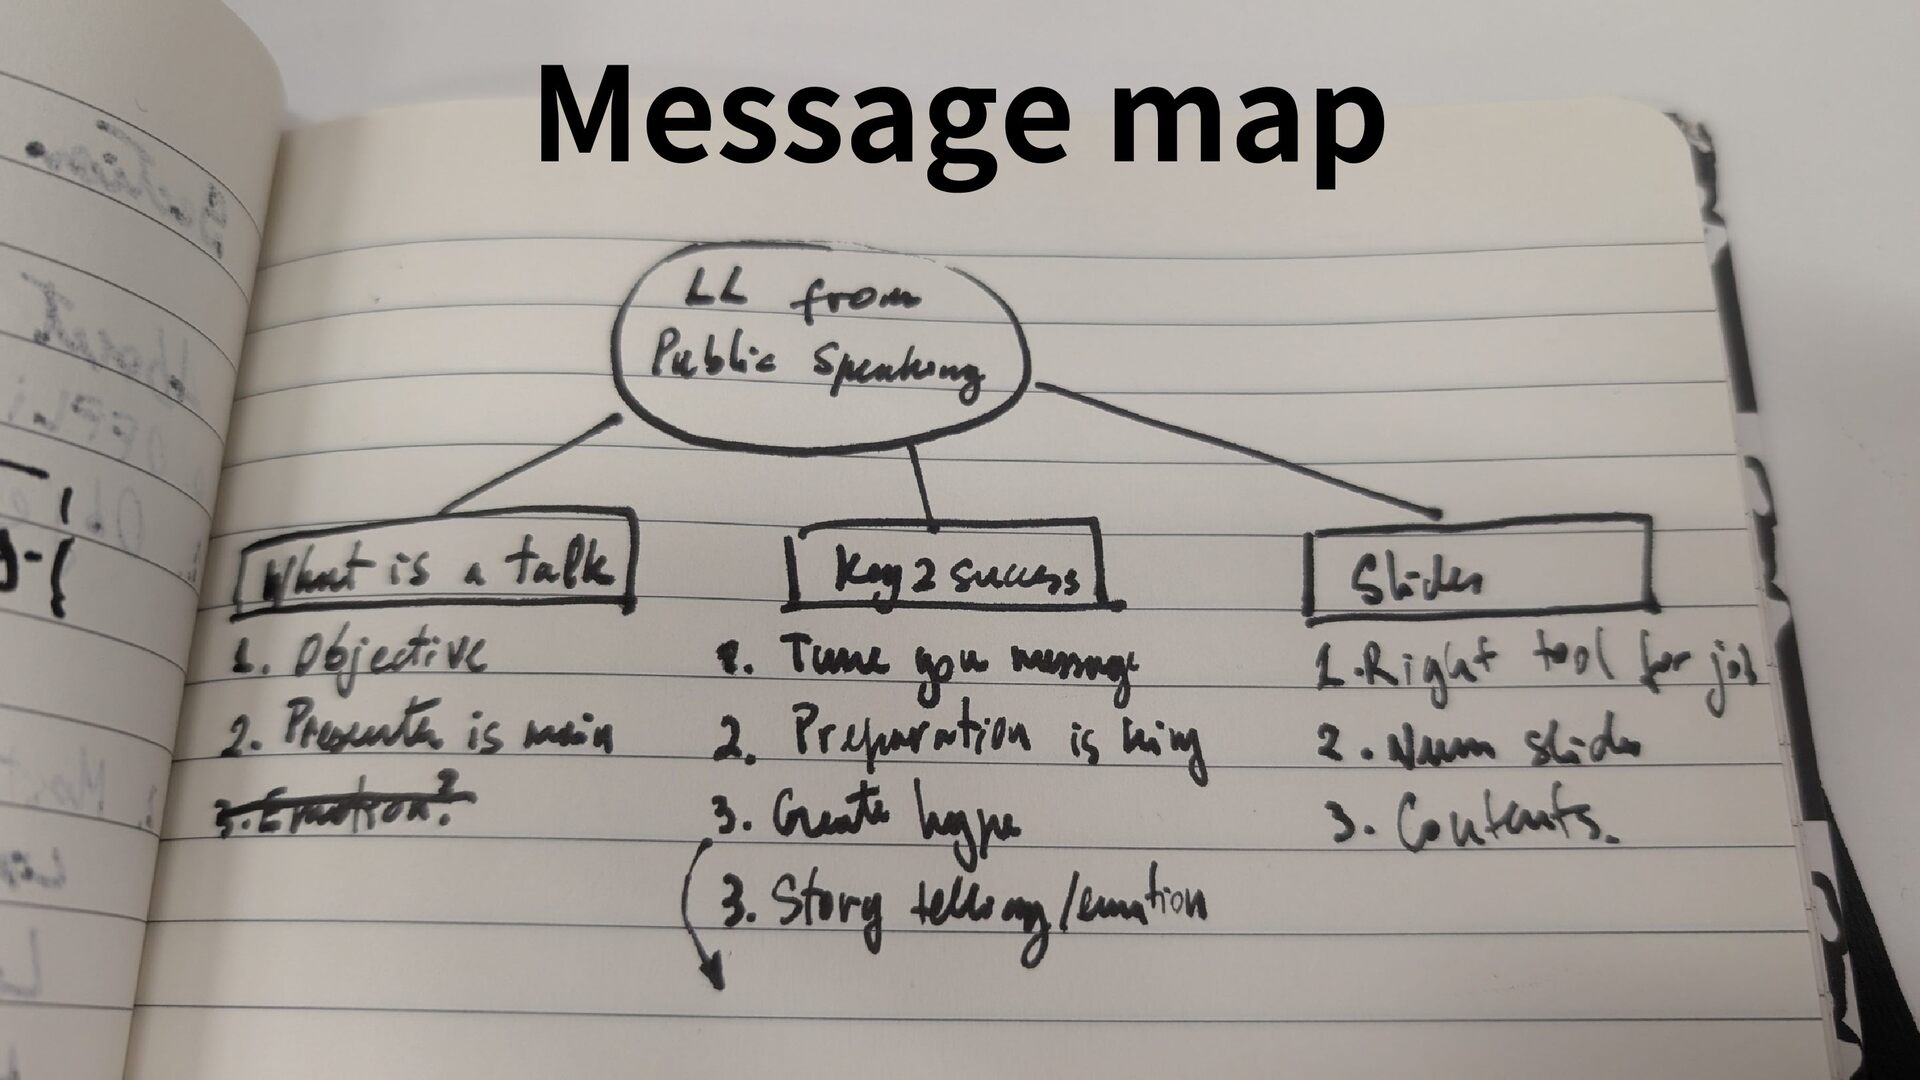 Message map
LL from
Public Speaking
What is a talk
1. Objective
2. Presenter is main
3. Emotion?
Key 2 success
1. Tune you message
2. Preparation is king
3. Create hype
3. Story telling/emotion
Slides
1. Right tool for job
2. Num slides
3. Contents.